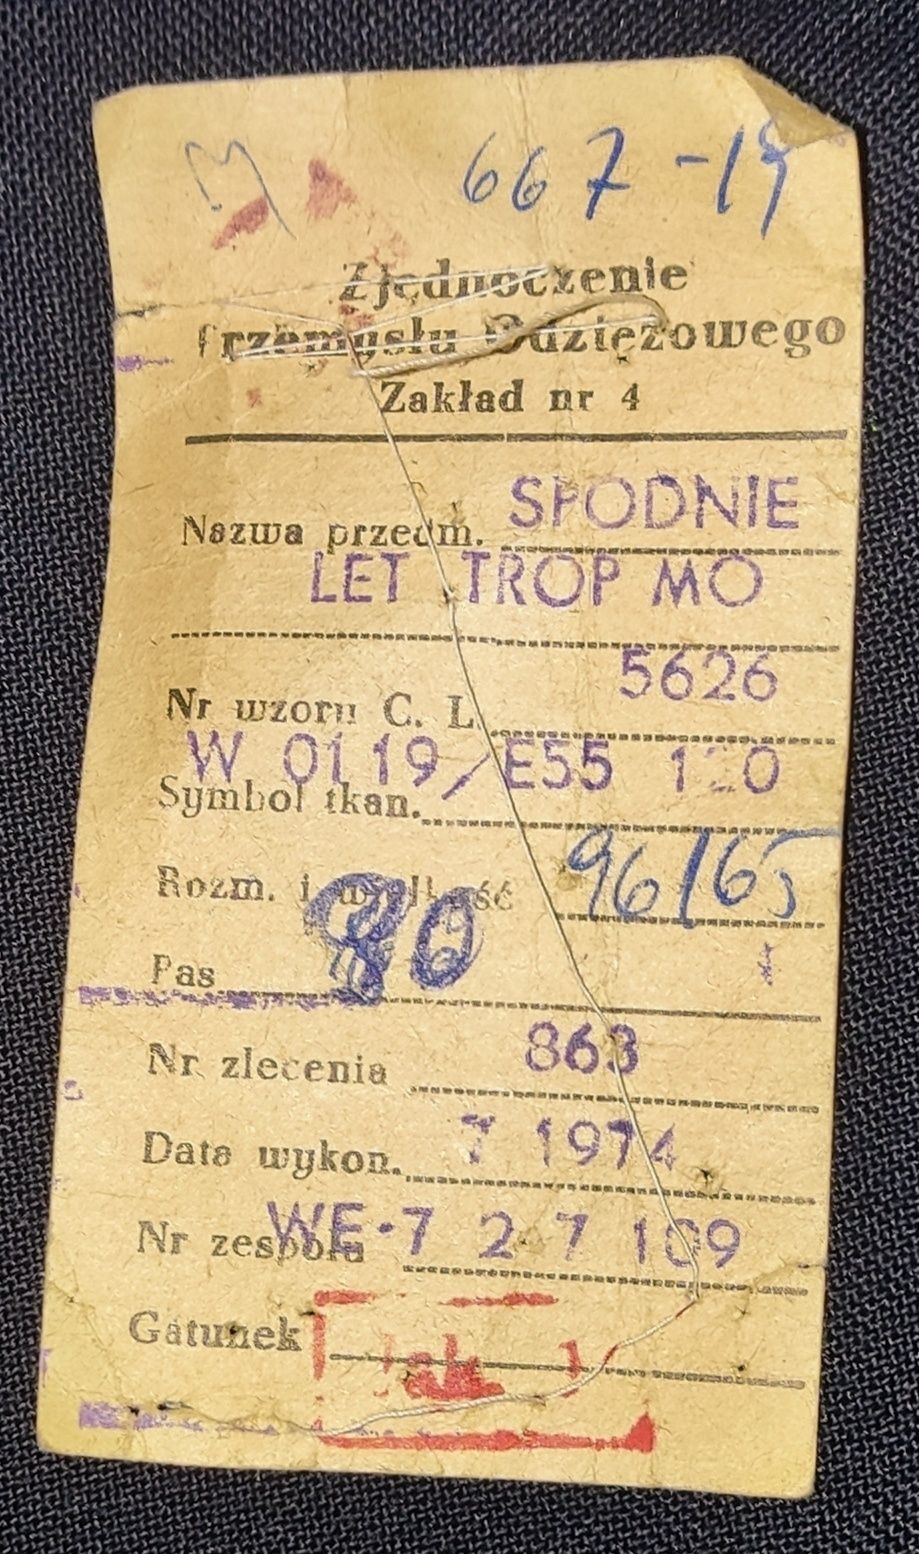 667-19
Zjednoczenie
Przemysłu Odzieżowego
Zakład nr 4
Nazwa przedm. SPODNIE
LET TROP MO
5626
Nr wzoru C. L.
W 0119/E55 120
Symbol tkan.
Rozm. i wielkość 96/65
Pas 80
Nr zlecenia 863
Data wykon. 7 1974
Nr zespołu WE-7 2 7 109
Gatunek Jak 1